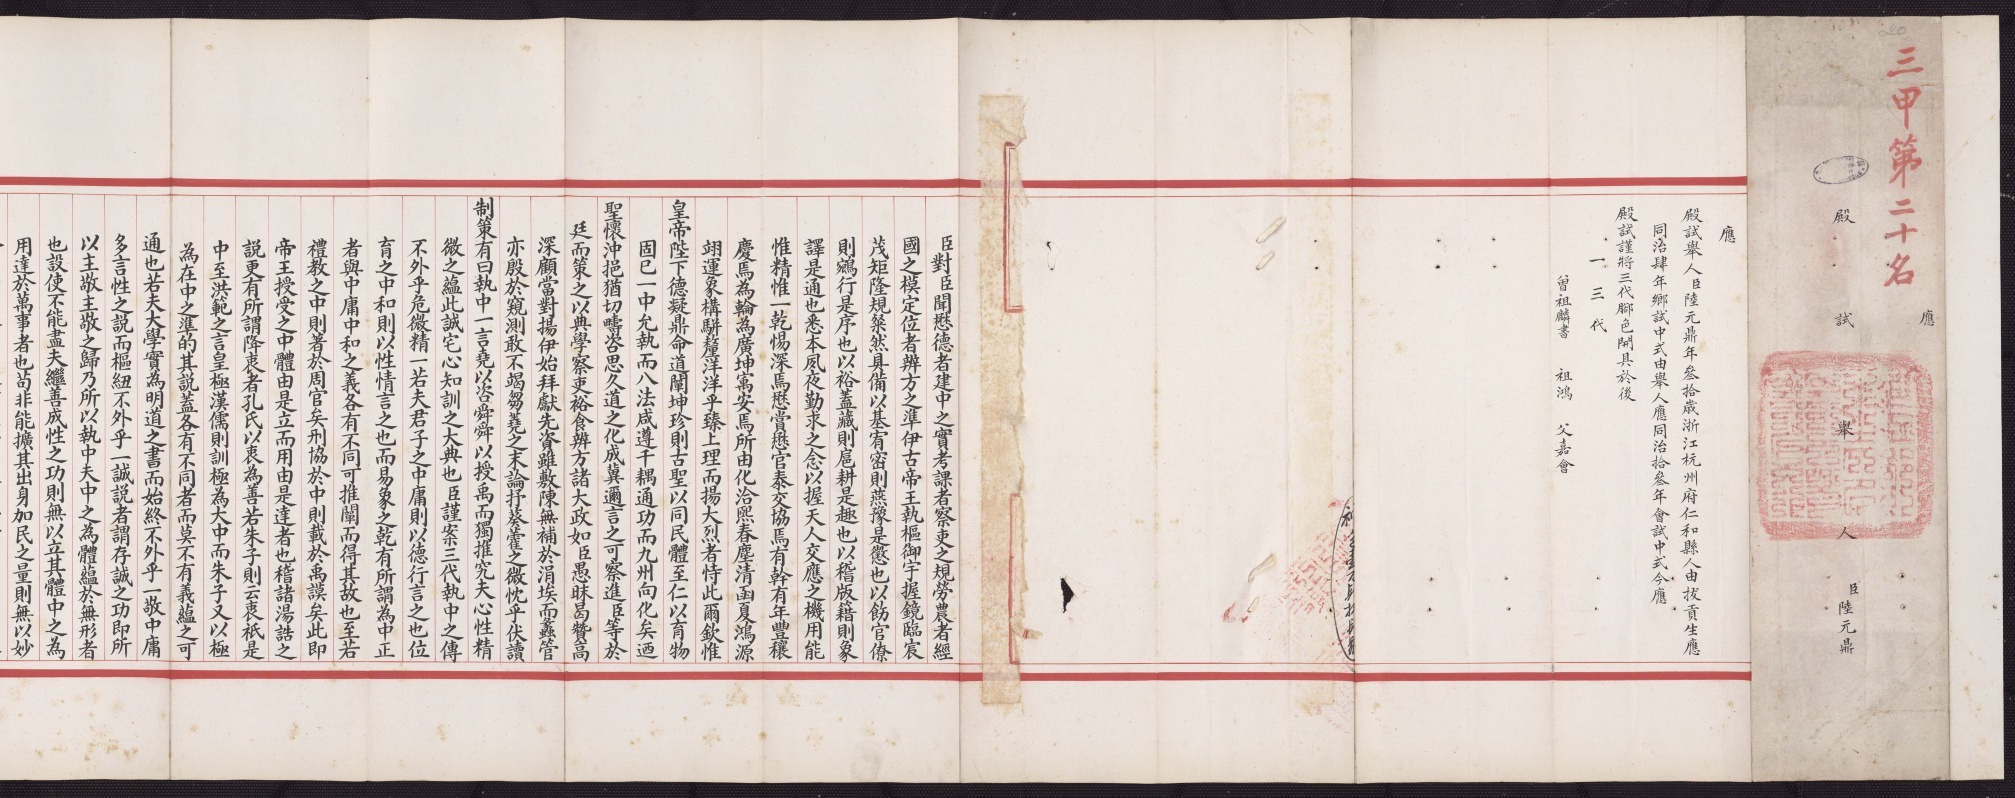 三甲第二十名
應
殿試舉人臣陸元鼎
應
殿試舉人臣陸元鼎年叁拾歲浙江杭州府仁和縣人由拔貢生應
同治肆年鄉試中式由舉人應同治拾叁年會試中式今應
殿試謹將三代腳色開具於後
一三代
曾祖麟書 祖鴻 父嘉會
臣對臣聞懋德者建中之實考課者察吏之規勞農者經
國之模定位者辨方之準伊古帝王執樞御宇握鏡臨宸
茂矩隆規粲然具備以基宥密則燕豫是懲也以飭官僚
則鵷行是序也以裕蓋藏則扈耕是趣也以稽版籍則象
譯是通也悉本夙夜勤求之念以握天人交應之機用能
惟精惟一乾惕深焉懋賞懋官泰交協焉有幹有年豐穰
慶焉為輪為廣坤寓安焉所由化洽熙春塵清函夏鴻源
翊運象構駢釐洋洋乎臻上理而揚大烈者恃此爾欽惟
皇帝陛下德凝鼎命道闡坤珍則古聖以同民體至仁以育物
固已一中允執而八法咸遵千耦通功而九州向化矣迺
聖懷沖挹猶切疇咨思久道之化成冀邇言之可察進臣等於
廷而策之以典學察吏裕食辨方諸大政如臣愚昧曷贊高
深顧當對揚伊始拜獻先資雖敷陳無補於涓埃而蠡管
亦殷於窺測敢不竭芻蕘之末論抒葵藿之微忱乎伏讀
制策有曰執中一言堯以咨舜舜以授禹而獨推究夫心性精
微之蘊此誠宅心知訓之大典也臣謹案三代執中之傳
不外乎危微精一若夫君子之中庸則以德行言之也位
育之中和則以性情言之也而易象之乾有所謂為中正
者與中庸中和之義各有不同可推闡而得其故也至若
禮教之中則著於周官矣刑協於中則載於禹謨矣此即
帝王授受之中體由是立而用由是達者也稽諸湯誥之
說更有所謂降衷者孔氏以衷為善若朱子則云衷祇是
中至洪範之言皇極漢儒則訓極為大中而朱子又以極
為在中之準的其說蓋各有不同者而莫不有義蘊之可
通也若夫大學實為明道之書而始終不外乎一敬中庸
多言性之說而樞紐不外乎一誠說者謂存誠之功即所
以主敬主敬之歸乃所以執中夫中之為體蘊於無形者
也設使不能盡夫繼善成性之功則無以立其體中之為
用達於萬事者也苟非能擴其出身加民之量則無以妙